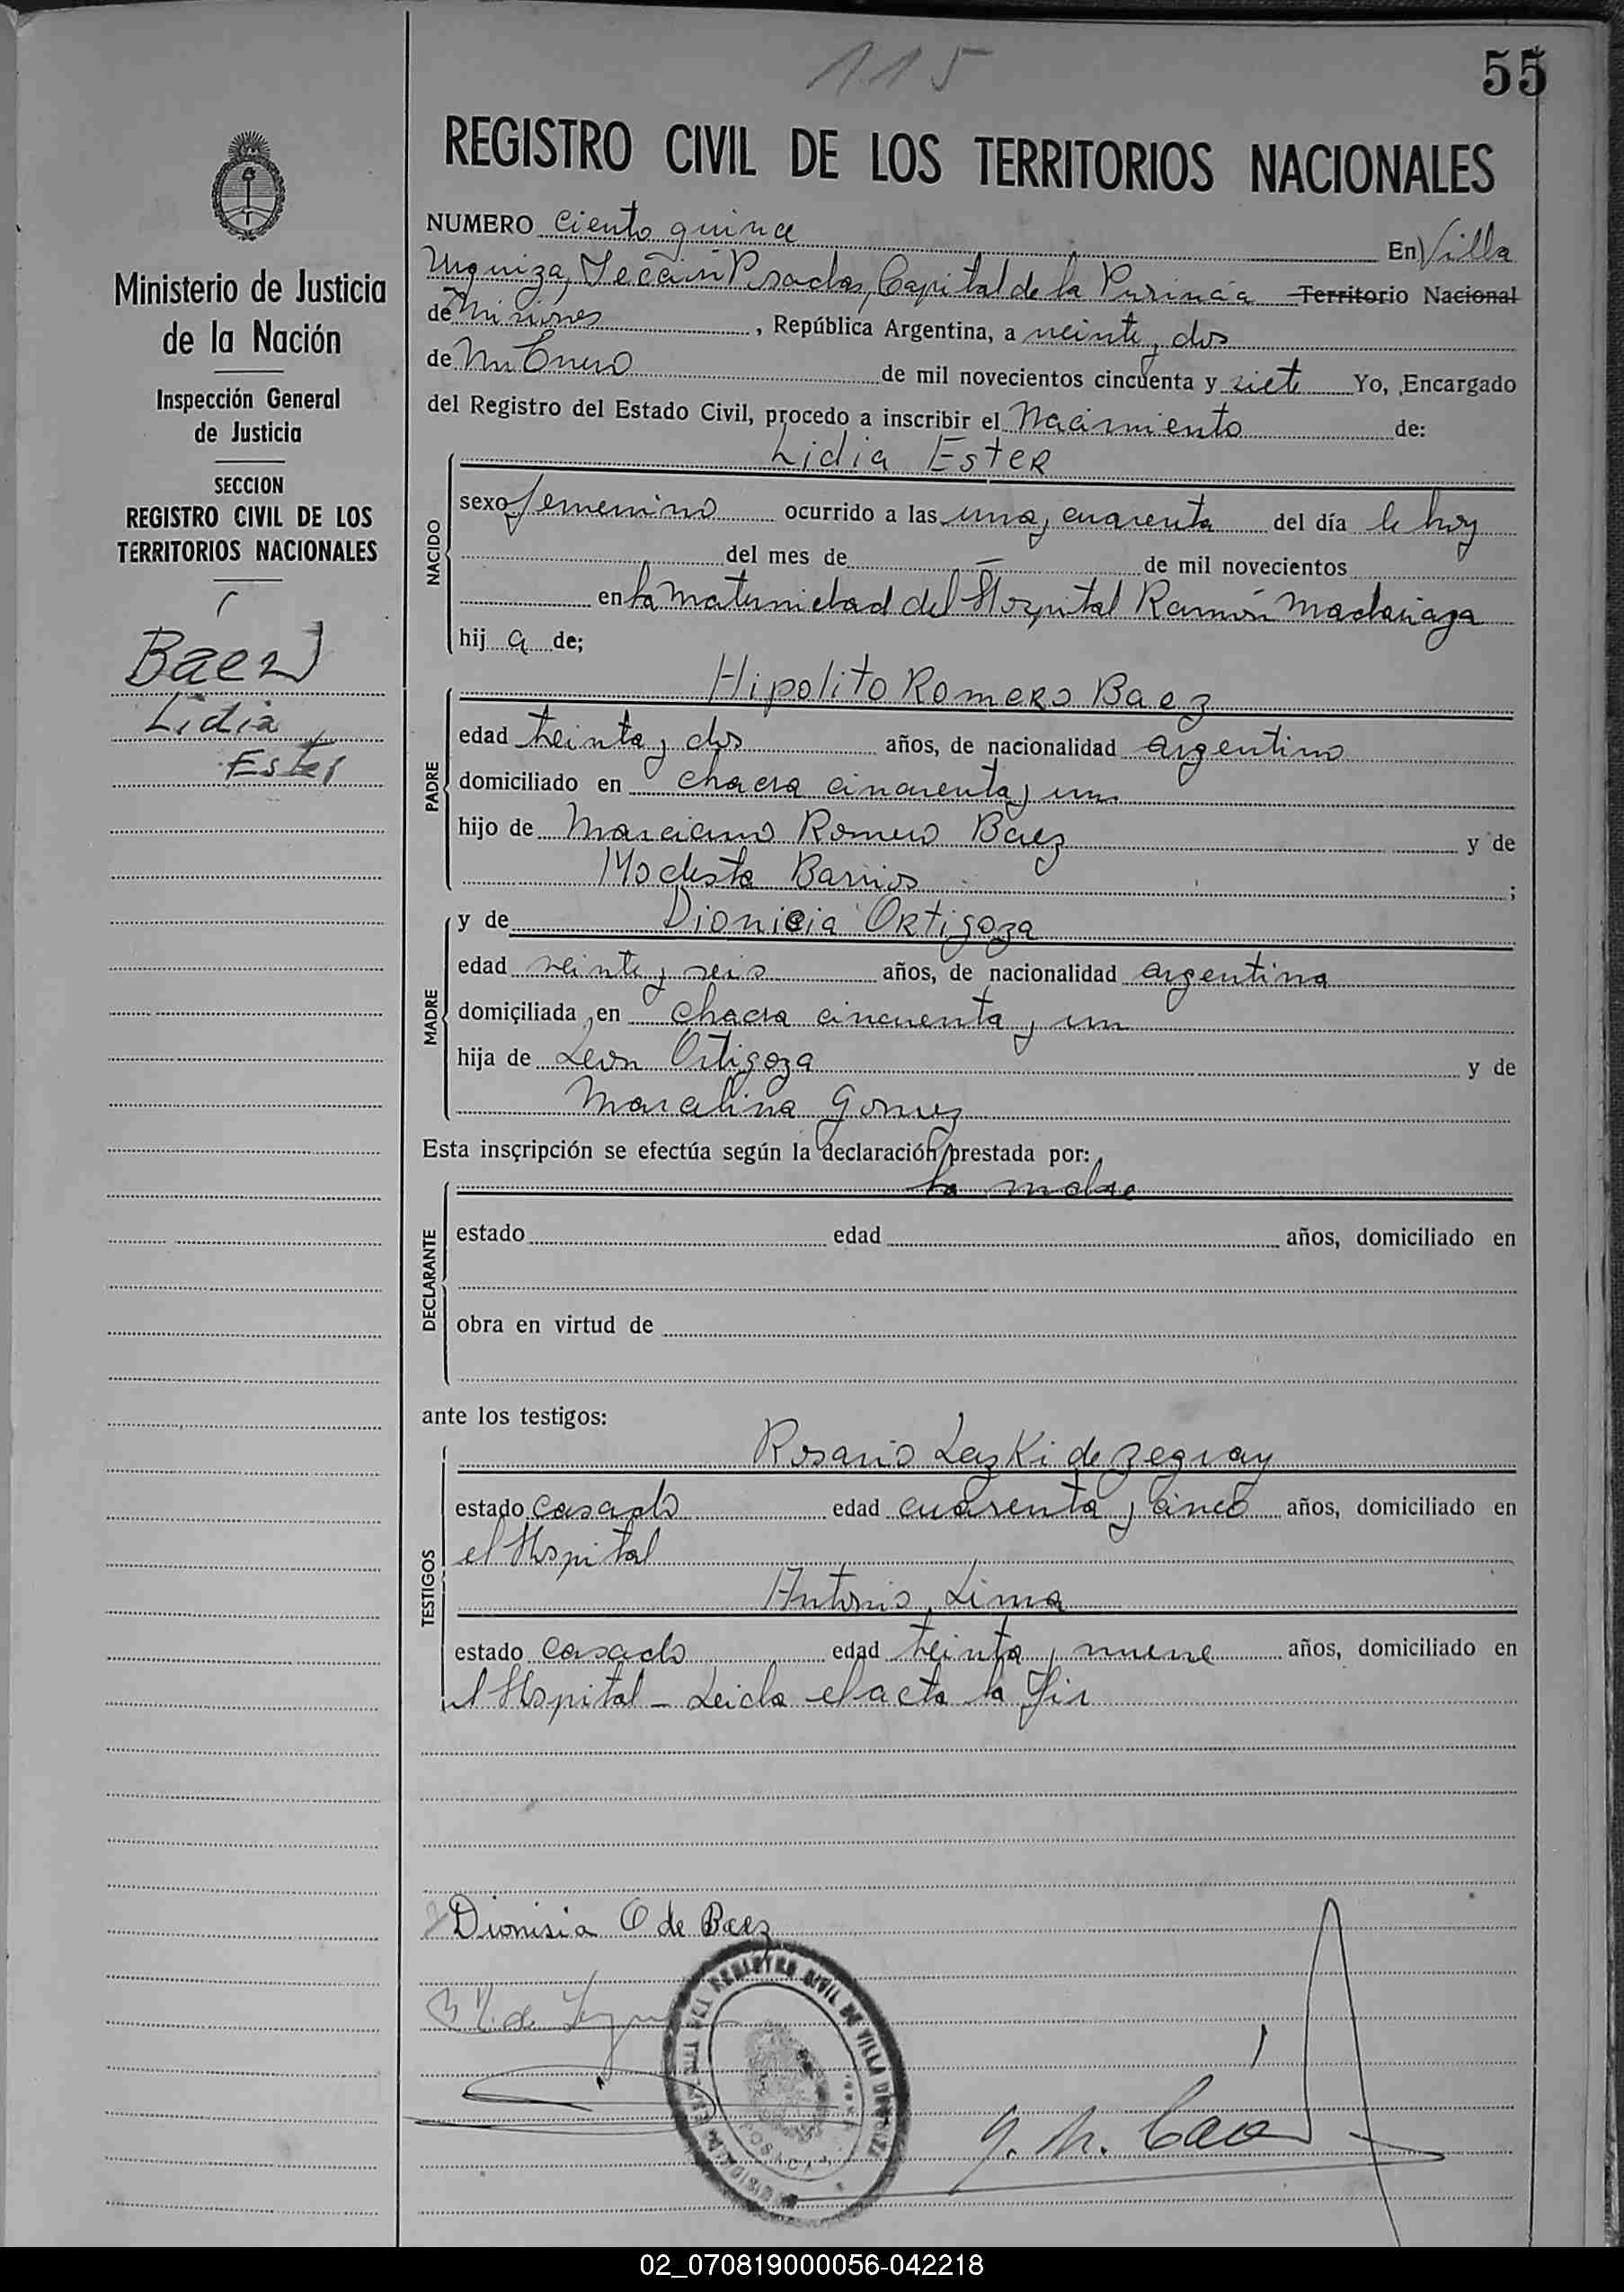 115
55
REGISTRO CIVIL DE LOS TERRITORIOS NACIONALES
Ministerio de Justicia
de la Nación
Inspección General
de Justicia
SECCION
REGISTRO CIVIL DE LOS
TERRITORIOS NACIONALES
Baez
Lidia
Ester
NUMERO Ciento quince En Villa
Urquiza, Sección Posadas, Capital de la Provincia Territorio Nacional
de Misiones, República Argentina, a veinte y dos
de Enero de mil novecientos cincuenta y siete Yo, Encargado
del Registro del Estado Civil, procedo a inscribir el Nacimiento de:
NACIDO
Lidia Ester
sexo femenino ocurrido a las una, cuarenta del día de hoy
del mes de de mil novecientos
en la Maternidad del Hospital Ramón Madariaga
hij a de;
PADRE
Hipolito Romero Baez
edad treinta y dos años, de nacionalidad argentino
domiciliado en chacra cincuenta y un
hijo de Marciano Romero Baez y de
Modesta Barrios ;
MADRE
y de Dionicia Ortigoza
edad veinte y seis años, de nacionalidad argentina
domiciliada en chacra cincuenta y un
hija de Leon Ortigoza y de
Marcelina Gomez
Esta inscripción se efectúa según la declaración prestada por:
DECLARANTE
la madre
estado edad años, domiciliado en
obra en virtud de
ante los testigos:
TESTIGOS
Rosario Lezki de Zegray
estado casado edad cuarenta y cinco años, domiciliado en
el Hospital
Antonio Lima
estado casado edad treinta y nueve años, domiciliado en
el Hospital - Leida el acta la
Dionisia O de Baez
REGISTRO CIVIL DE VILLA URQUIZA
POSADAS
02_070819000056-042218